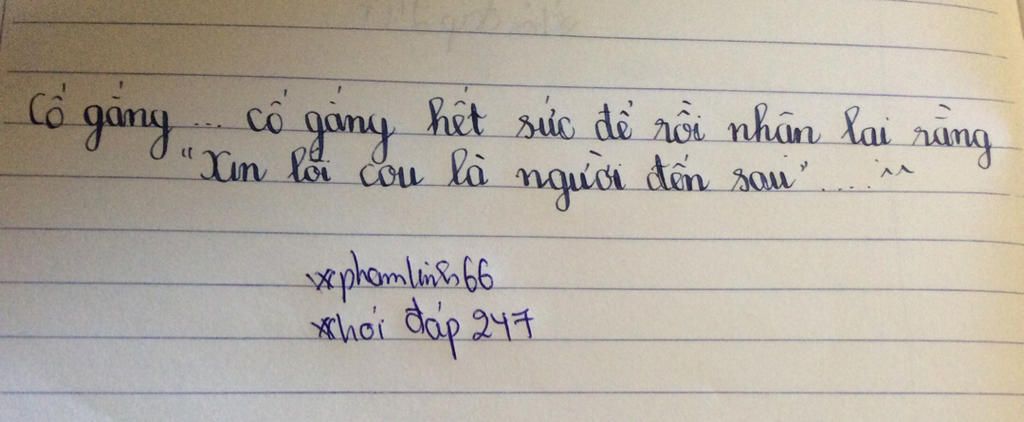 Cố gắng ... cố gắng hết sức để rồi nhận lại rằng
"Xin lỗi cou là người đến sau" .... ^^
xphamlinh66
xhỏi đáp 247